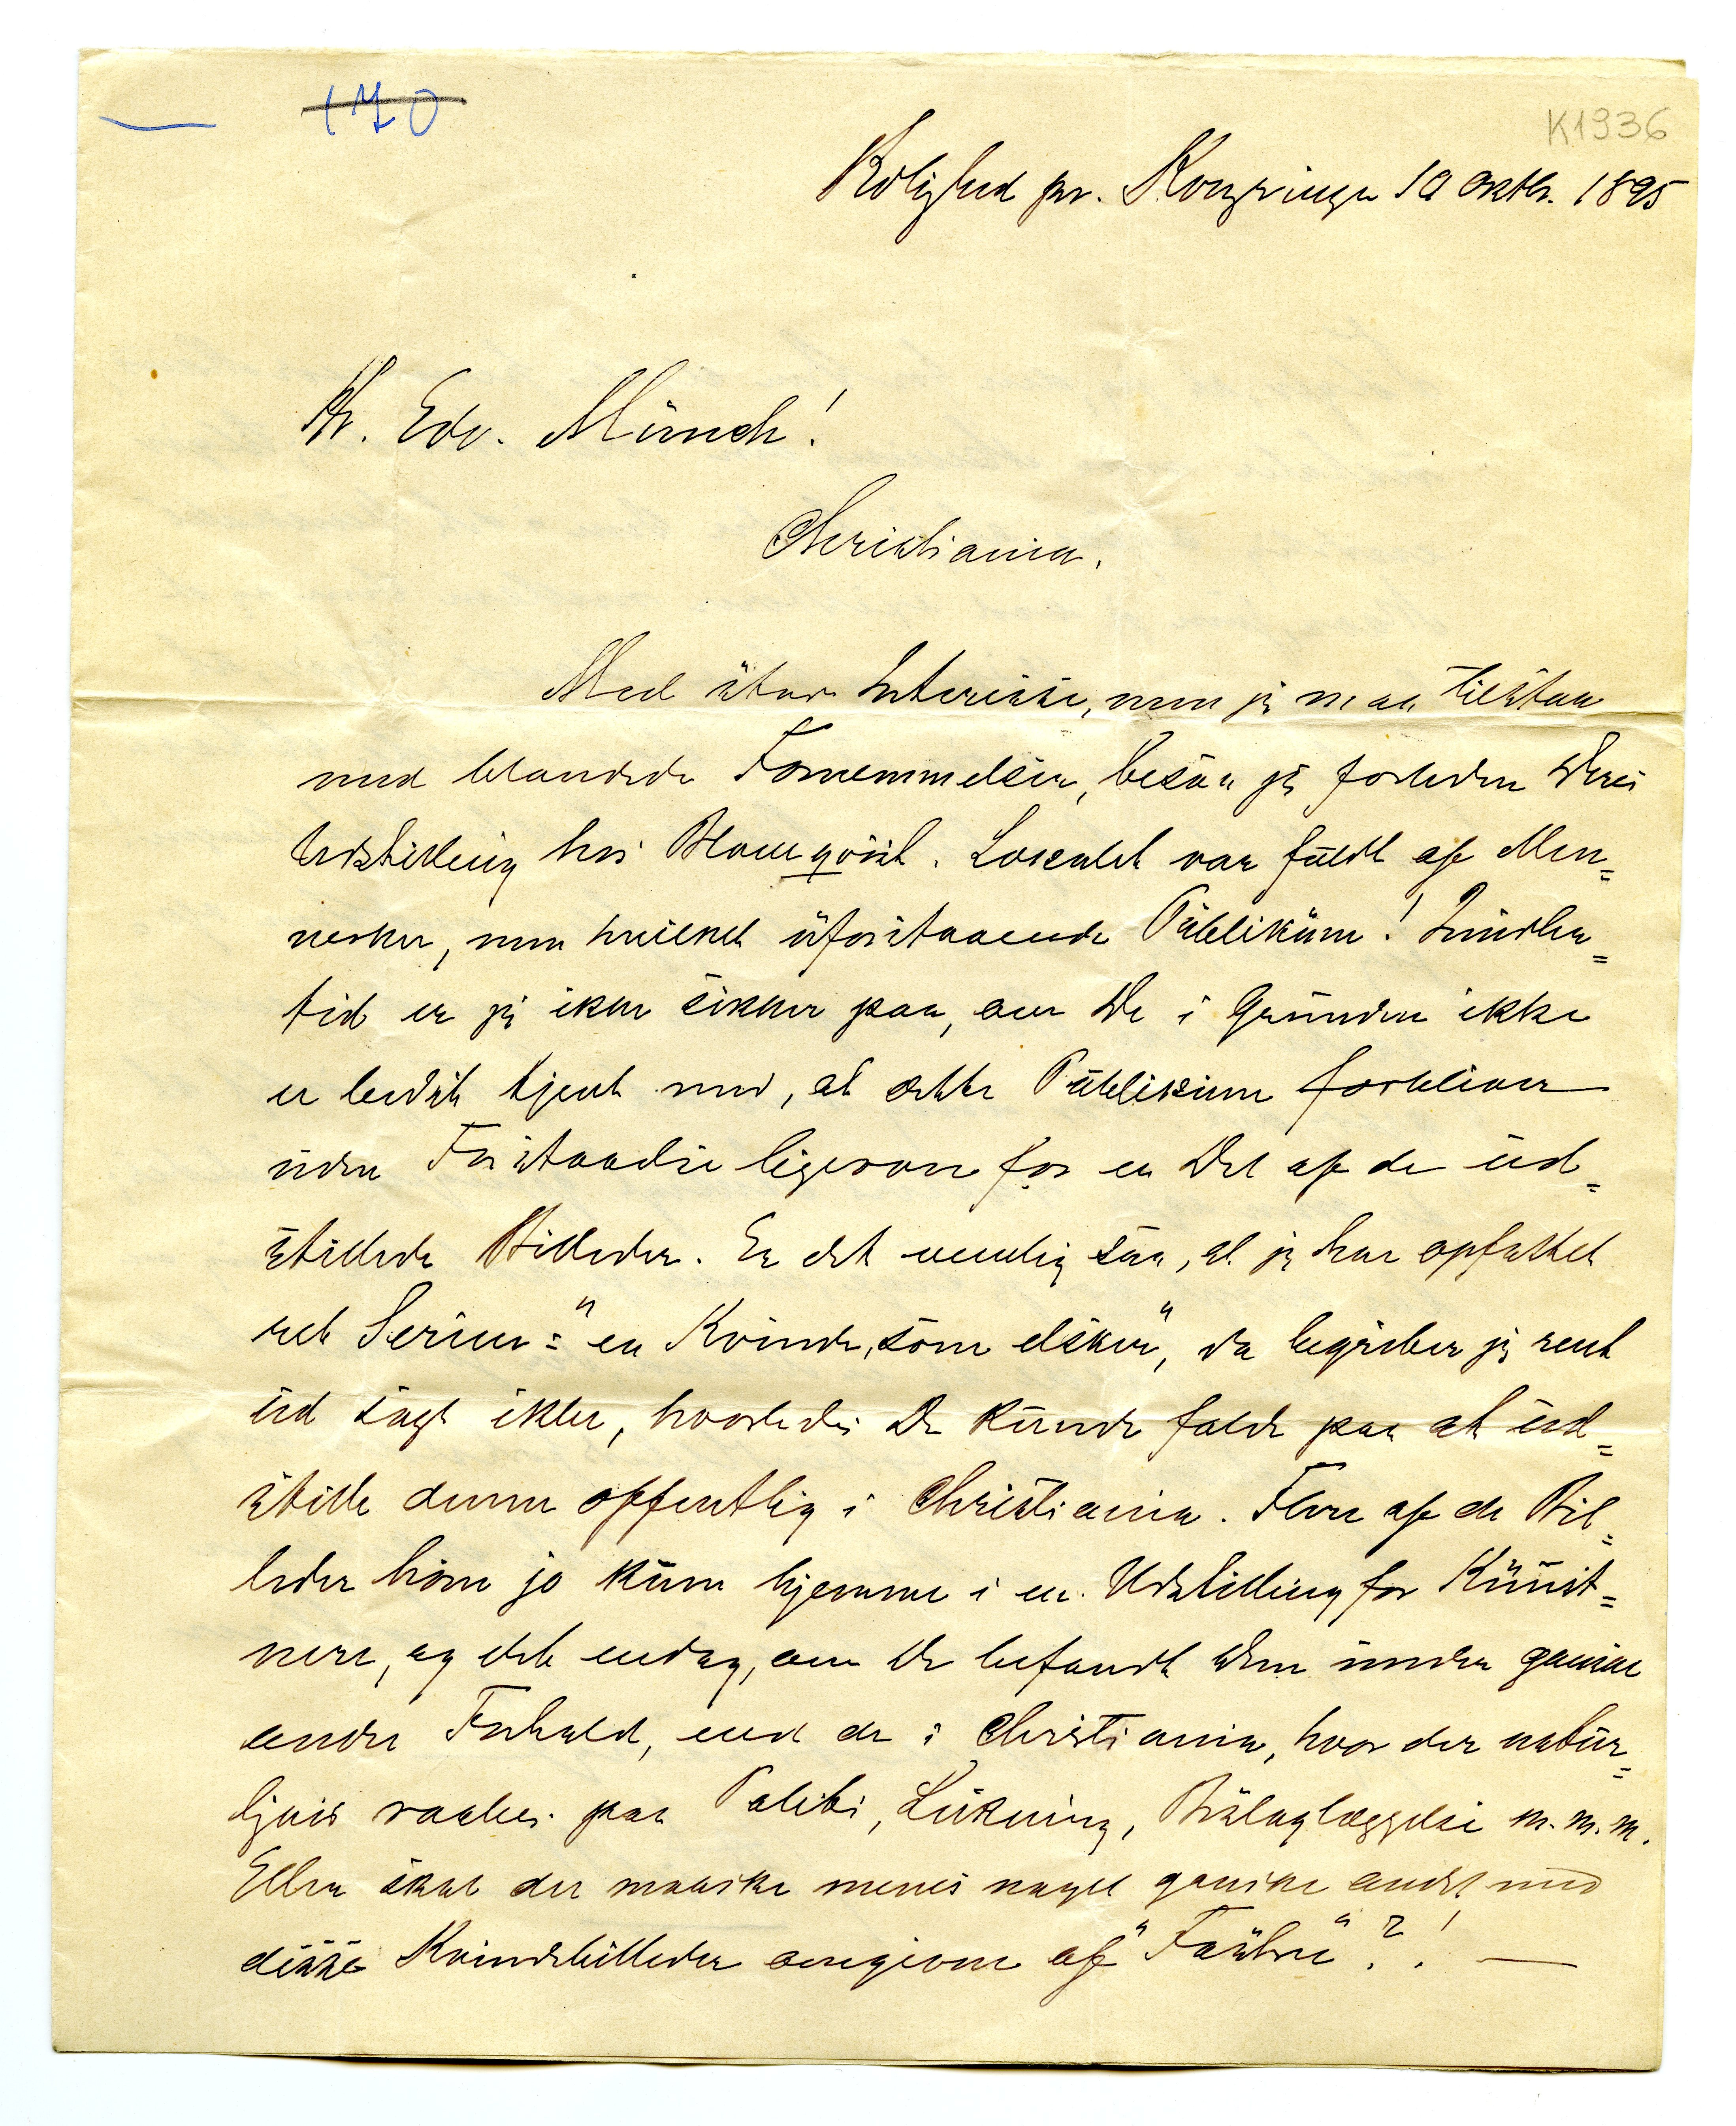 170
K1936
Rolighed pr. Kongsvinger 10 Oktbr. 1895
Hr. Edv. Münch!
Christiania.
Med stor Interesse, men jeg maa tilstaa
med blandede Fornemmelser, besaa jeg forleden Deres
Udstilling hos Blomqvist. Localet var fuldt af Men=
nesker, men hvilket uforstaaende Publikum! Imidler=
tid er jeg ikke sikker paa, om De i Grunden ikke
er bedst tjent med, at dette Publikum forbliver
uden Forstaaelse ligeoverfor en Del af de ud=
stillede Billeder. Er det nemlig saa, at jeg har opfattet
ret Serien: "en Kvinde, som elsker", da begriber jeg rent
ud sagt ikke, hvorledes De kunde falde paa at ud=
stille denne offentlig i Christiania. Flere af de Bil=
leder høre jo kun hjemme i en Udstilling for Kunst=
nere, og det endog, om De befandt Dem under ganske
andre Forhold, end de i Christiania, hvor der natur=
ligvis raabes paa Politi, Lukning, Beslaglæggelse m.m.m.
Eller skal der maaske menes noget ganske andet med
disse Kvindebilleder omgivne af "Fostre"?! —